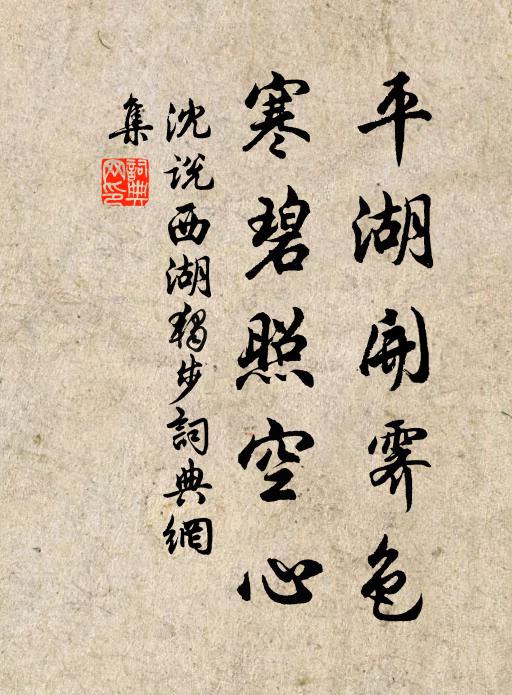 平湖開霽色
寒碧照空心
沈說西湖獨步詞典網
集
詞典網印